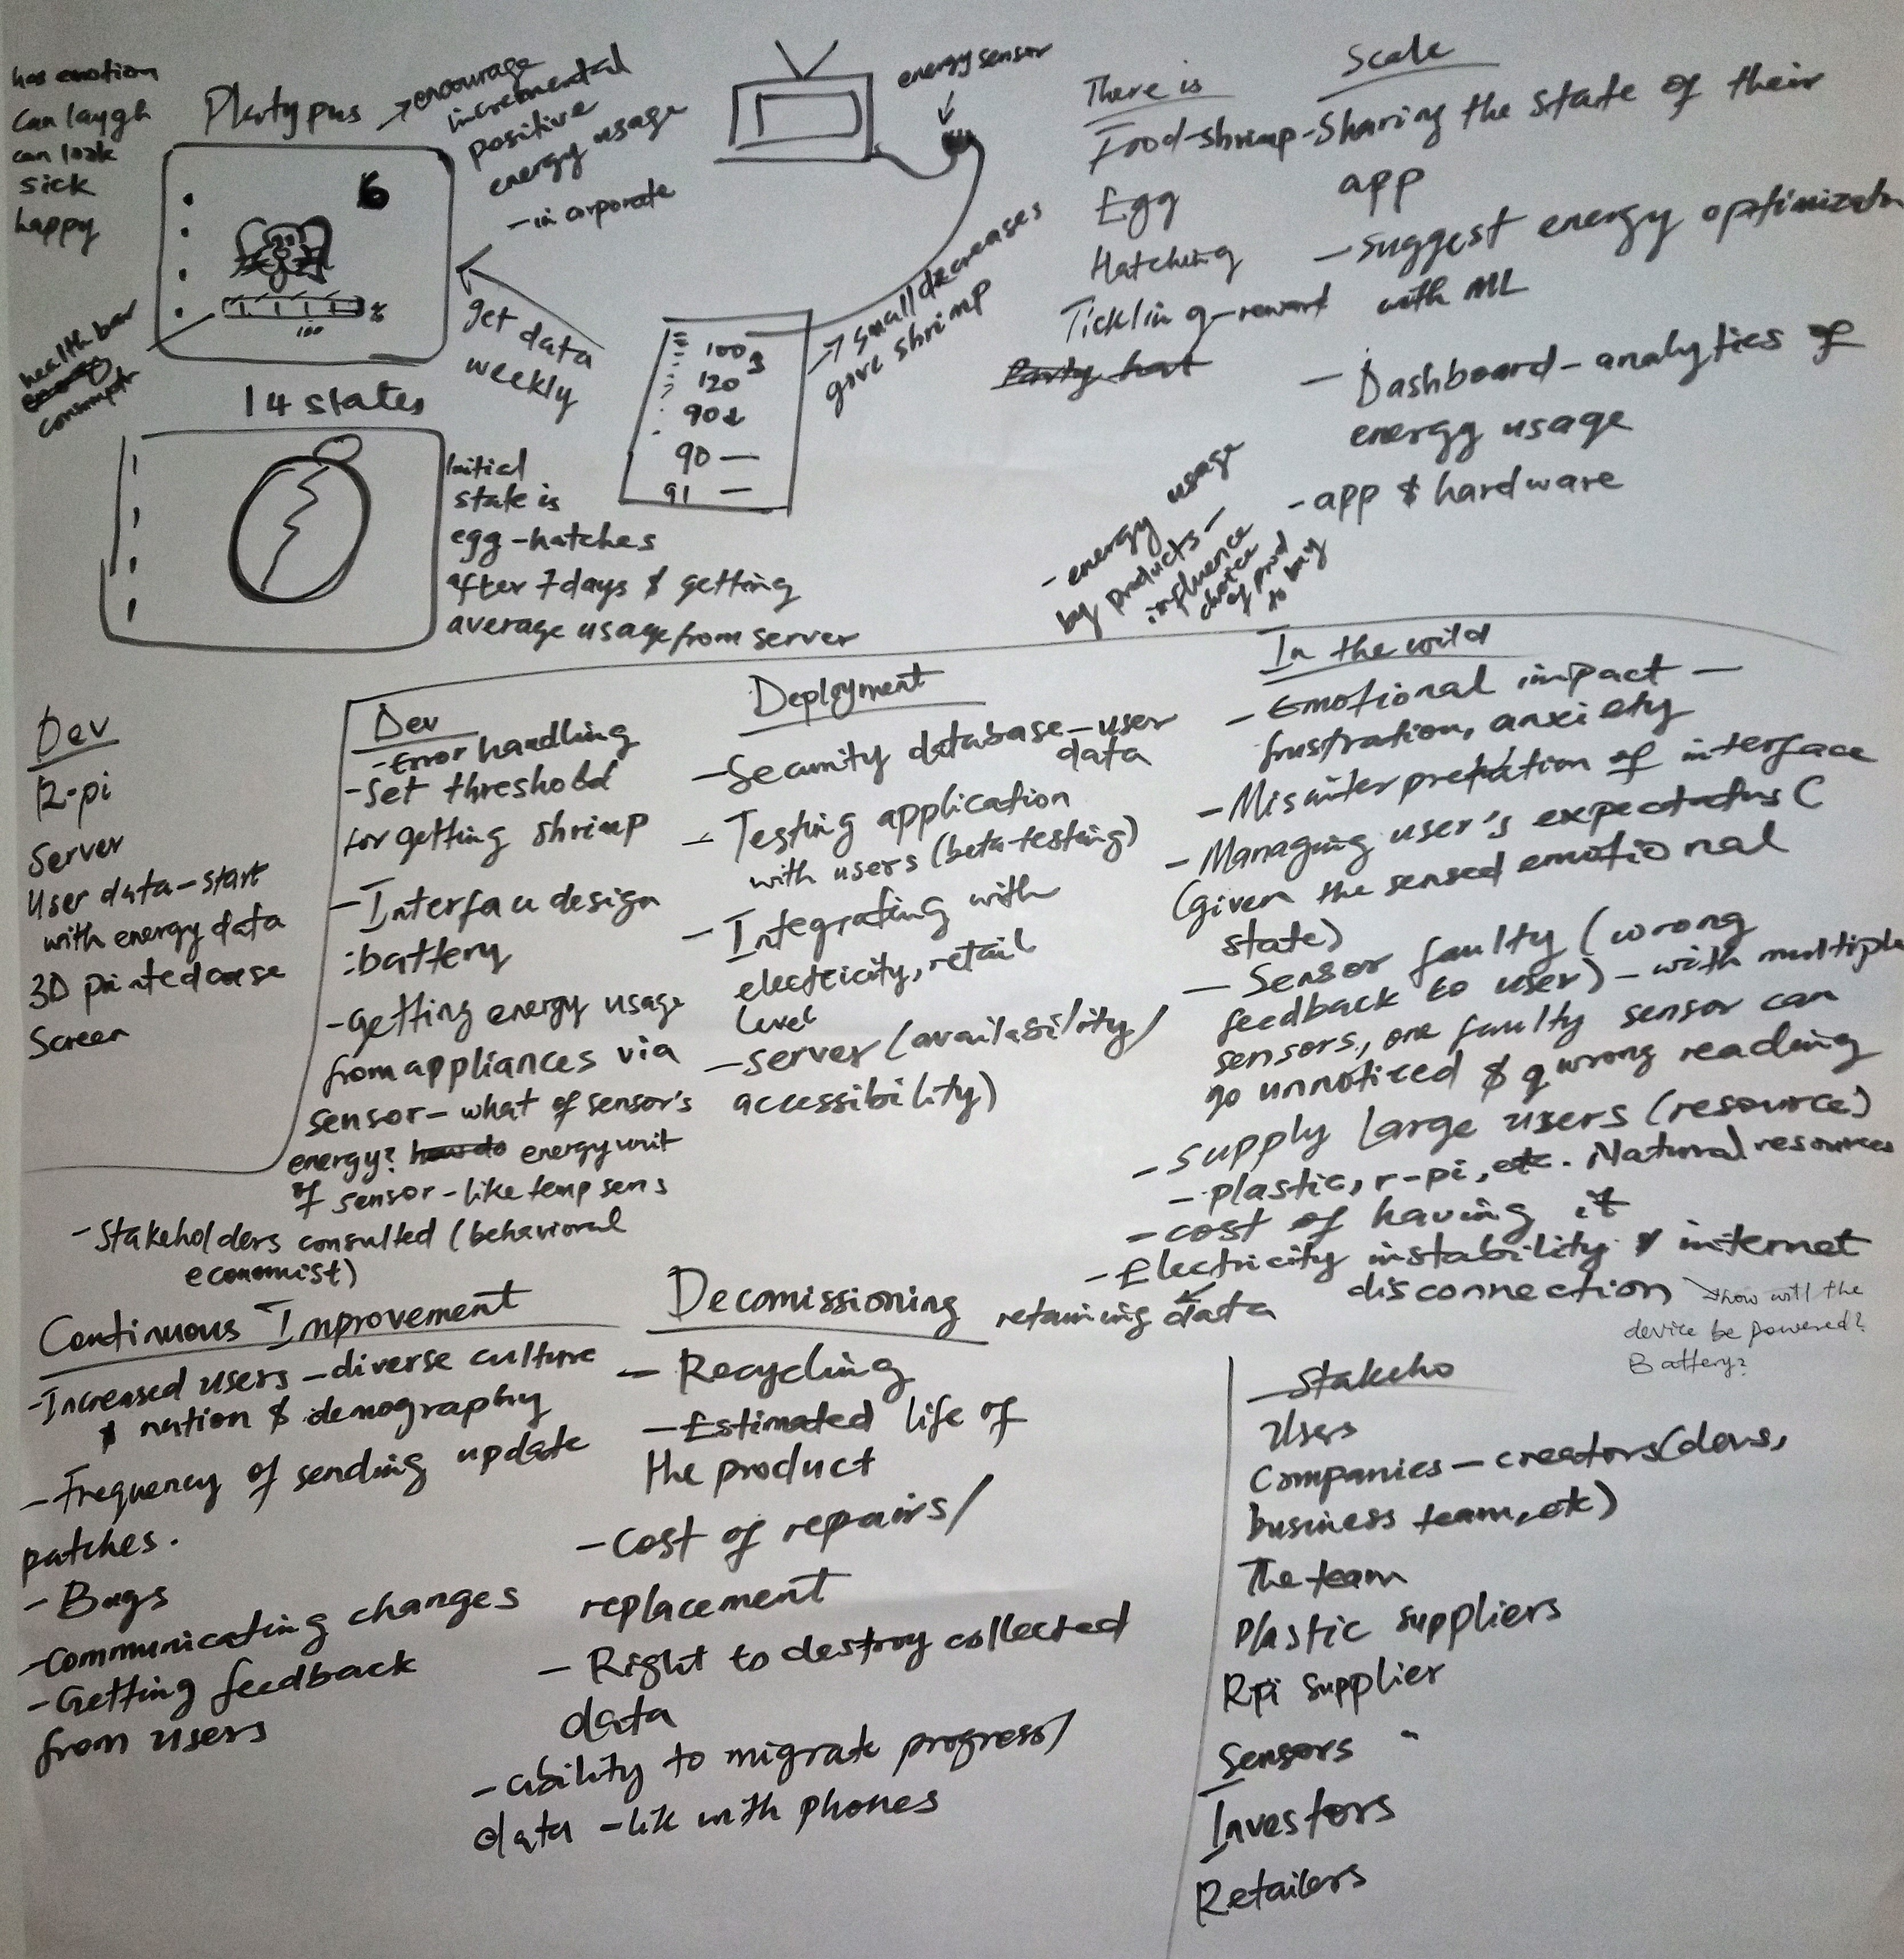 has emotion
can laygh
can look
sick
happy
Platypus
encourage
incremental
positive
energy usage
- in corporate
energy sensor
6
100
health bar
consumpt
14 states
get data
weekly
100
120
90
90 —
91 —
small decreases
give shrimp
There is
Food-shrimp
Egg
Hatching
Tickling - reward
Party hat
Scale
- Sharing the state of their
app
- suggest energy optimizatn
with ML
- Dashboard - analytics of
energy usage
- app & hardware
- energy usage
by products -
influence
choice
of prod
to buy
Initial
state is
egg - hatches
after 7 days & getting
average usage from server
Dev
R-pi
Server
User data - start
with energy data
3D printed case
Screen
Dev
- Error handling
- Set threshold
for getting shrimp
- Interface design
: battery
- Getting energy usage
from appliances via
sensor - what of sensor's
energy? how do energy unit
of sensor - like temp sens
- Stakeholders consulted (behavioral
economist)
Deployment
- Security database - user
data
- Testing application
with users (beta-testing)
- Integrating with
electricity, retail
level
- server (availability/
accessibility)
In the wild
- Emotional impact -
frustration, anxiety
- Misinterpretation of interface
- Managing user's expectatns (
(given the sensed emotional
state)
- Sensor faulty (wrong
feedback to user) - with multiple
sensors, one faulty sensor can
go unnoticed & g wrong reading
- supply large users (resource)
- plastic, r-pi, etc. Natural resources
- cost of having it
- Electricity instability & internet
disconnection
how will the
device be powered?
Battery?
retaining data
Continuous Improvement
- Increased users - diverse culture
& nation & demography
- Frequency of sending update
patches.
- Bugs
- Communicating changes
- Getting feedback
from users
Decomissioning
- Recycling
- Estimated life of
the product
- Cost of repairs/
replacement
- Right to destroy collected
data
- ability to migrate progress/
data - lik with phones
Stakeho
Users
Companies - creators (devs,
business team, etc)
The team
Plastic suppliers
Rpi supplier
Sensors "
Investors
Retailers